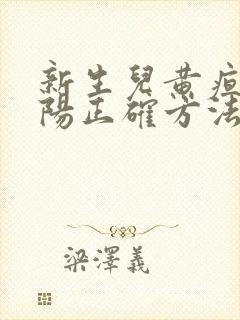 新生兒黃疸
陽正確方法
梁澤義